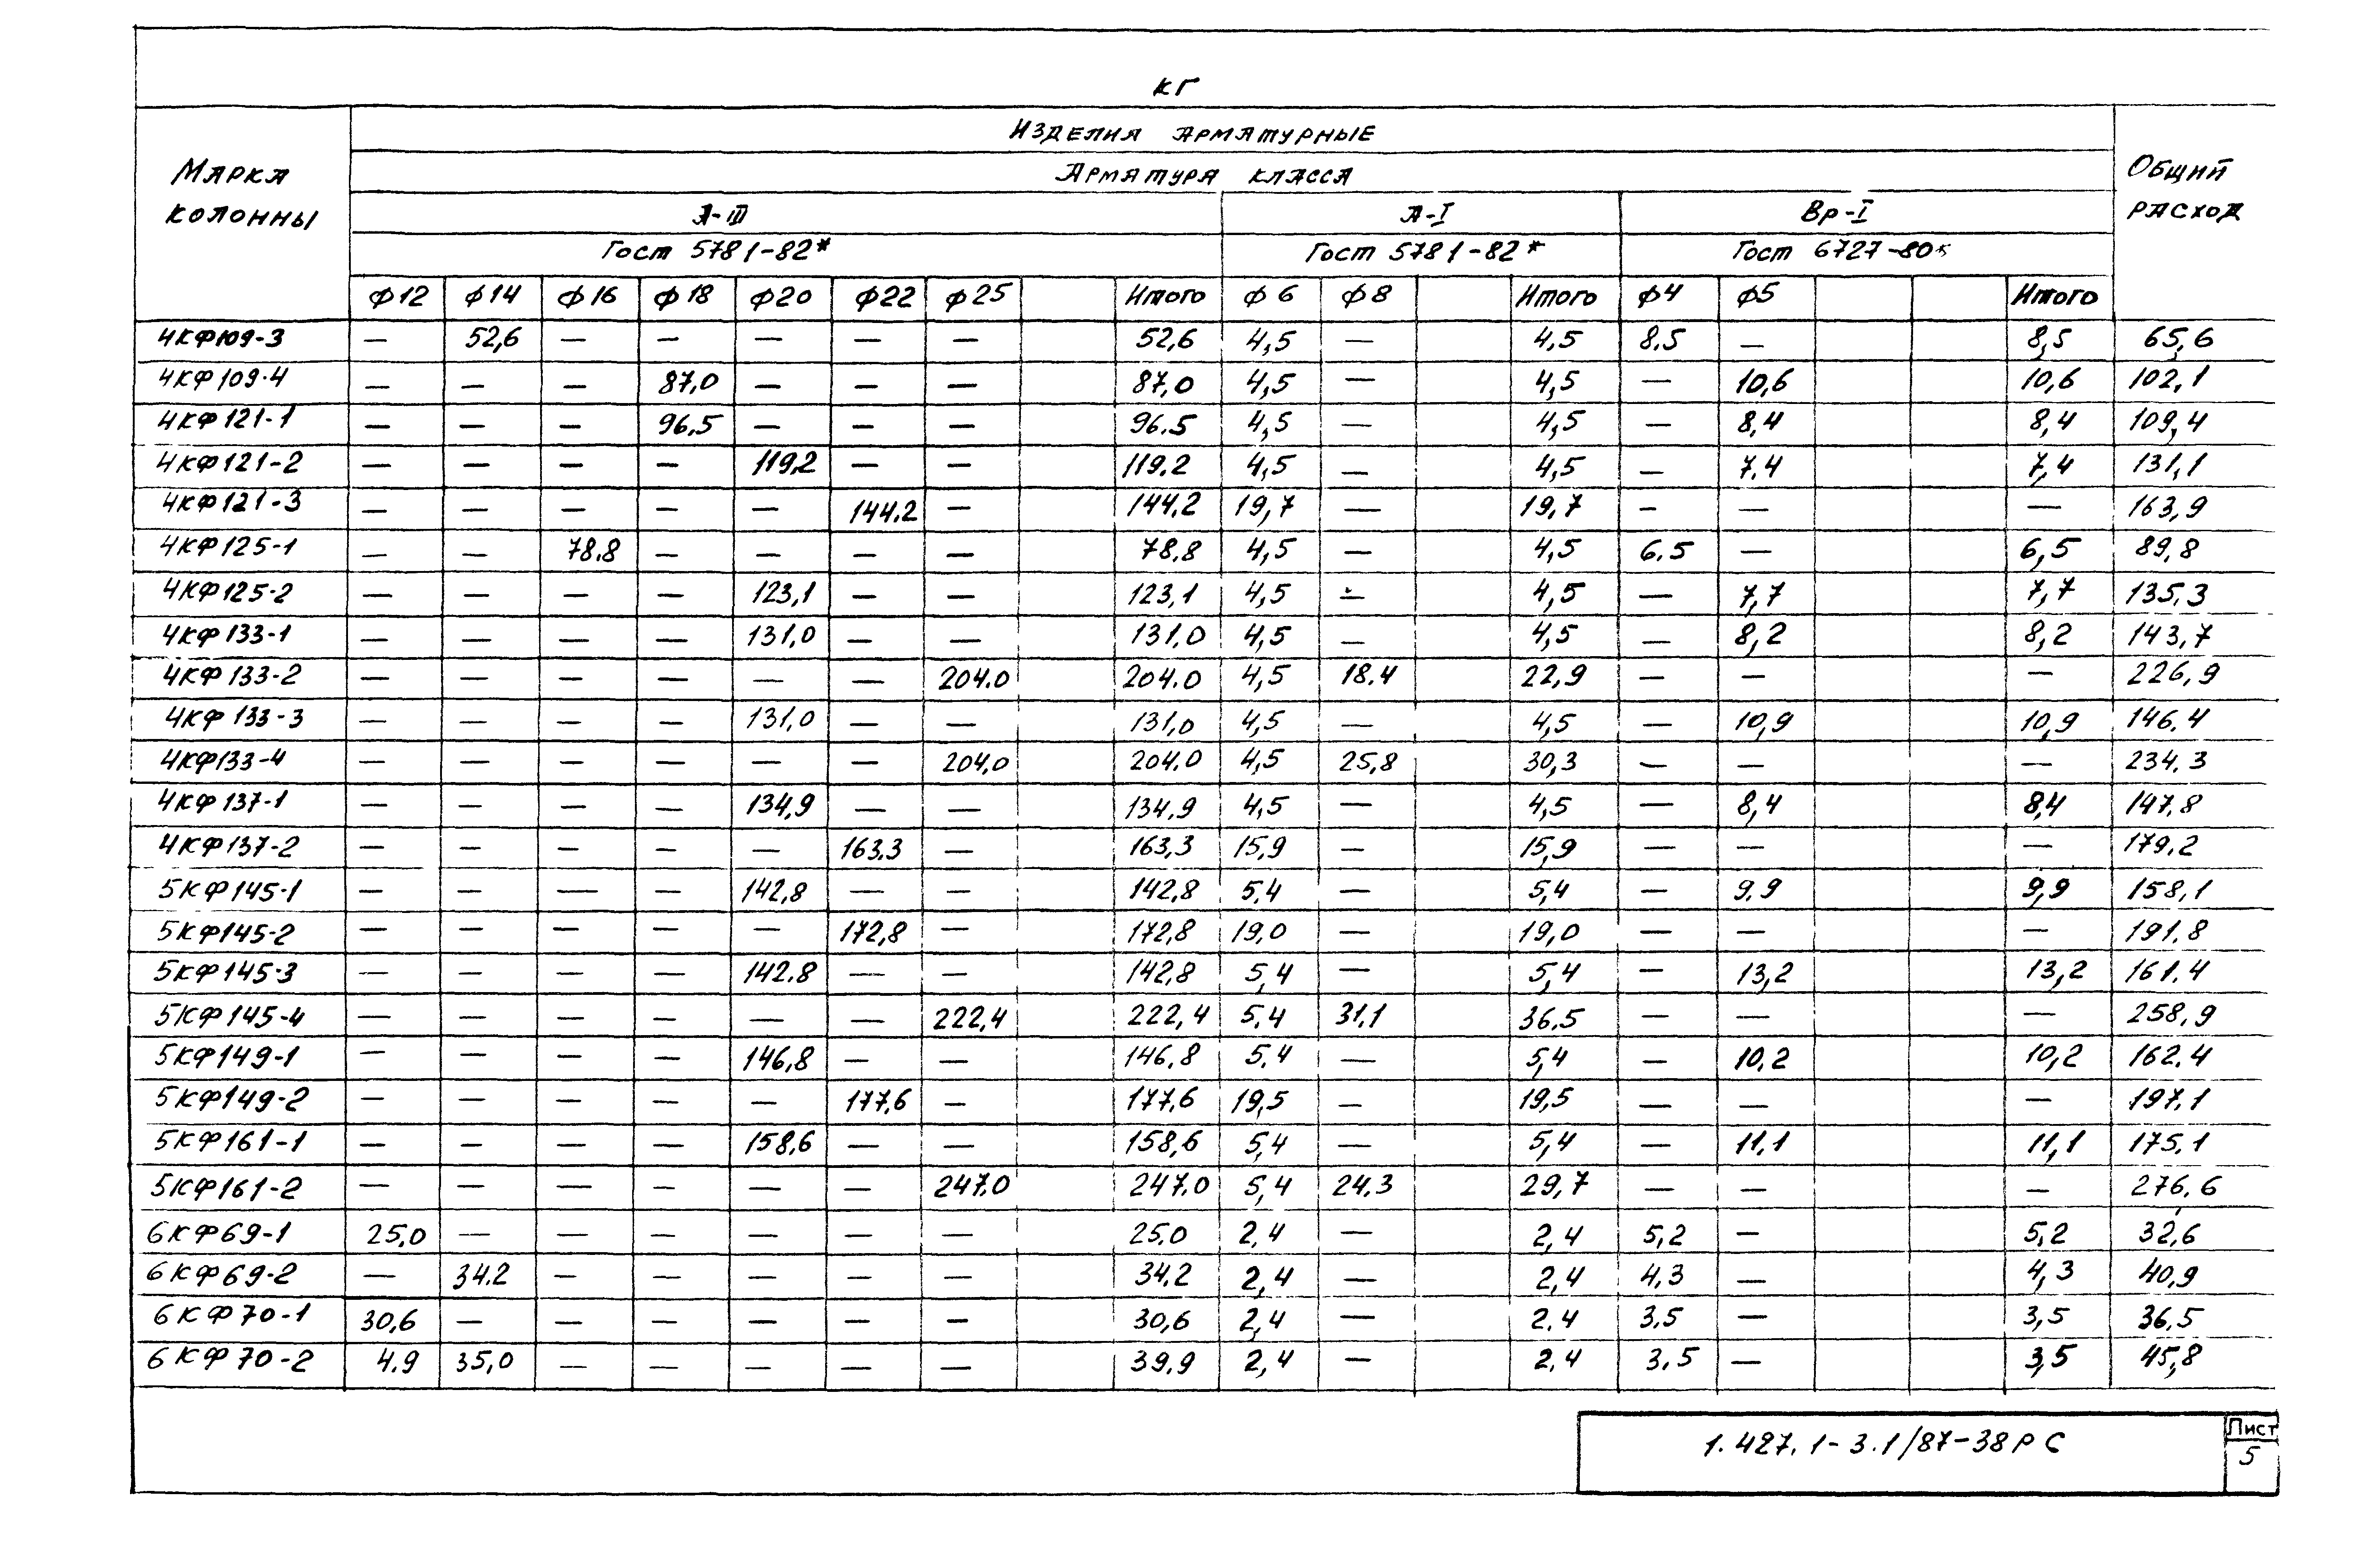 кг
Марка колонны
Изделия арматурные
Общий расход
Арматура класса
А-III А-I Вр-I
Гост 5781-82* Гост 5781-82* Гост 6727-80*
ф12 ф14 ф16 ф18 ф20 ф22 ф25 Итого ф6 ф8 Итого ф4 ф5 Итого
4КФ109-3 — 52,6 — — — — — 52,6 4,5 — 4,5 8.5 — 8,5 65,6
4КФ109-4 — — — 87,0 — — — 87,0 4,5 — 4,5 — 10,6 10,6 102,1
4КФ121-1 — — — 96,5 — — — 96.5 4,5 — 4,5 — 8,4 8,4 109,4
4КФ121-2 — — — — 119,2 — — 119.2 4,5 — 4,5 — 7.4 7,4 131,1
4КФ121-3 — — — — — 144.2 — 144,2 19,7 — 19,7 — — — 163,9
4КФ125-1 — — 78.8 — — — — 78.8 4,5 — 4,5 6.5 — 6,5 89,8
4КФ125-2 — — — — 123,1 — — 123,1 4,5 — 4,5 — 7,7 7,7 135,3
4КФ133-1 — — — — 131,0 — — 131,0 4,5 — 4,5 — 8,2 8,2 143,7
4КФ133-2 — — — — — — 204.0 204.0 4,5 18.4 22,9 — — — 226,9
4КФ133-3 — — — — 131,0 — — 131,0 4,5 — 4,5 — 10,9 10,9 146.4
4КФ133-4 — — — — — — 204,0 204.0 4,5 25,8 30,3 — — — 234.3
4КФ137-1 — — — — 134,9 — — 134,9 4,5 — 4,5 — 8,4 8,4 147,8
4КФ137-2 — — — — — 163.3 — 163,3 15,9 — 15,9 — — — 179,2
5КФ145-1 — — — — 142,8 — — 142,8 5,4 — 5,4 — 9.9 9,9 158,1
5КФ145-2 — — — — — 172,8 — 172,8 19,0 — 19,0 — — — 191.8
5КФ145-3 — — — — 142.8 — — 142,8 5,4 — 5,4 — 13,2 13,2 161.4
5КФ145-4 — — — — — — 222,4 222,4 5.4 31.1 36.5 — — — 258,9
5КФ149-1 — — — — 146,8 — — 146,8 5.4 — 5,4 — 10,2 10,2 162.4
5КФ149-2 — — — — — 177,6 — 177,6 19,5 — 19,5 — — — 197.1
5КФ161-1 — — — — 158,6 — — 158,6 5,4 — 5,4 — 11.1 11,1 175,1
5КФ161-2 — — — — — — 247.0 247.0 5,4 24.3 29,7 — — — 276,6
6КФ69-1 25,0 — — — — — — 25.0 2,4 — 2,4 5,2 — 5,2 32,6
6КФ69-2 — 34.2 — — — — — 34.2 2,4 — 2,4 4,3 — 4,3 40,9
6КФ70-1 30,6 — — — — — — 30,6 2,4 — 2.4 3.5 — 3,5 36.5
6КФ70-2 4.9 35,0 — — — — — 39.9 2,4 — 2.4 3,5 — 3,5 45,8
1.427.1-3.1/87-38РС
Лист
5